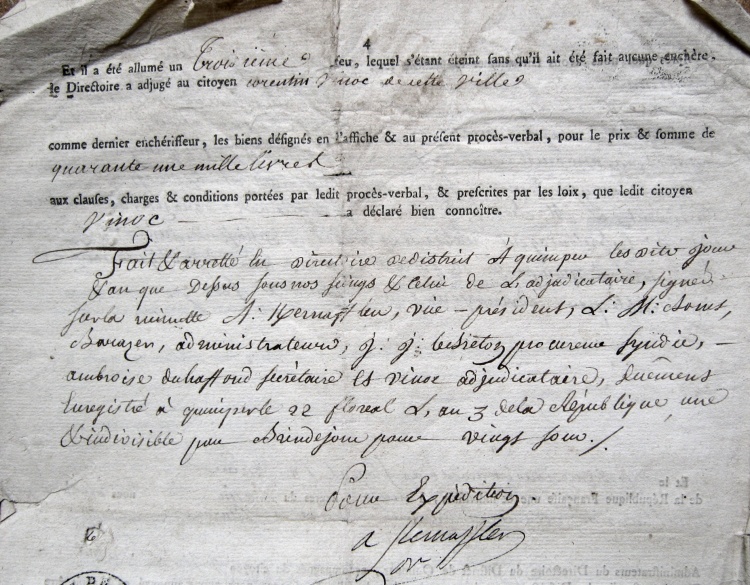 4
Et il a été allumé un troisième feu, lequel s'étant éteint sans qu'il ait été fait aucune enchère,
le Directoire a adjugé au citoyen corentin vinoc de cette ville
comme dernier enchérisseur, les biens désignés en l'affiche & au présent procès-verbal, pour le prix & somme de
quarante une mille livres
aux clauses, charges & conditions portées par ledit procès-verbal, & prescrites par les loix, que ledit citoyen
vinoc a déclaré bien connoître.
Fait & arretté en directoire de district A quimper les dits jour
& an que Dessus sous nos seings & celui de L'adjudicataire, signé
sur la minutte A. Kernafflen, vice-président, L. M.
administrateurs, J. J. Le Breton procureur syndic, —
ambroise duhaffond secrétaire et vinoc adjudicataire, Duement
Enregistré à quimper le 22 floreal L'an 3 de la République une
& indivisible par Brindejonc pour vingt sous./.
Pour Expédition
a Kernafflen